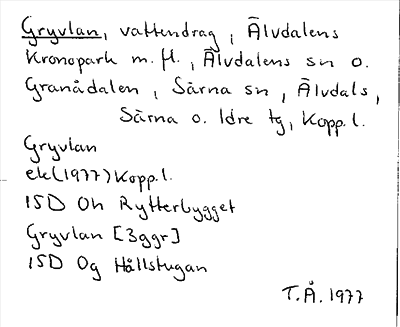 Gryvlan, vattendrag, Älvdalens
Kronopark m. fl., Älvdalens sn o.
Granådalen, Särna sn, Älvdals,
Särna o. Idre tg, Kopp. l.
Gryvlan
ek(1977) Kopp. l.
15D Oh Rytterbygget
Gryvlan [3ggr]
15D Og Hållstugan
T.Å. 1977